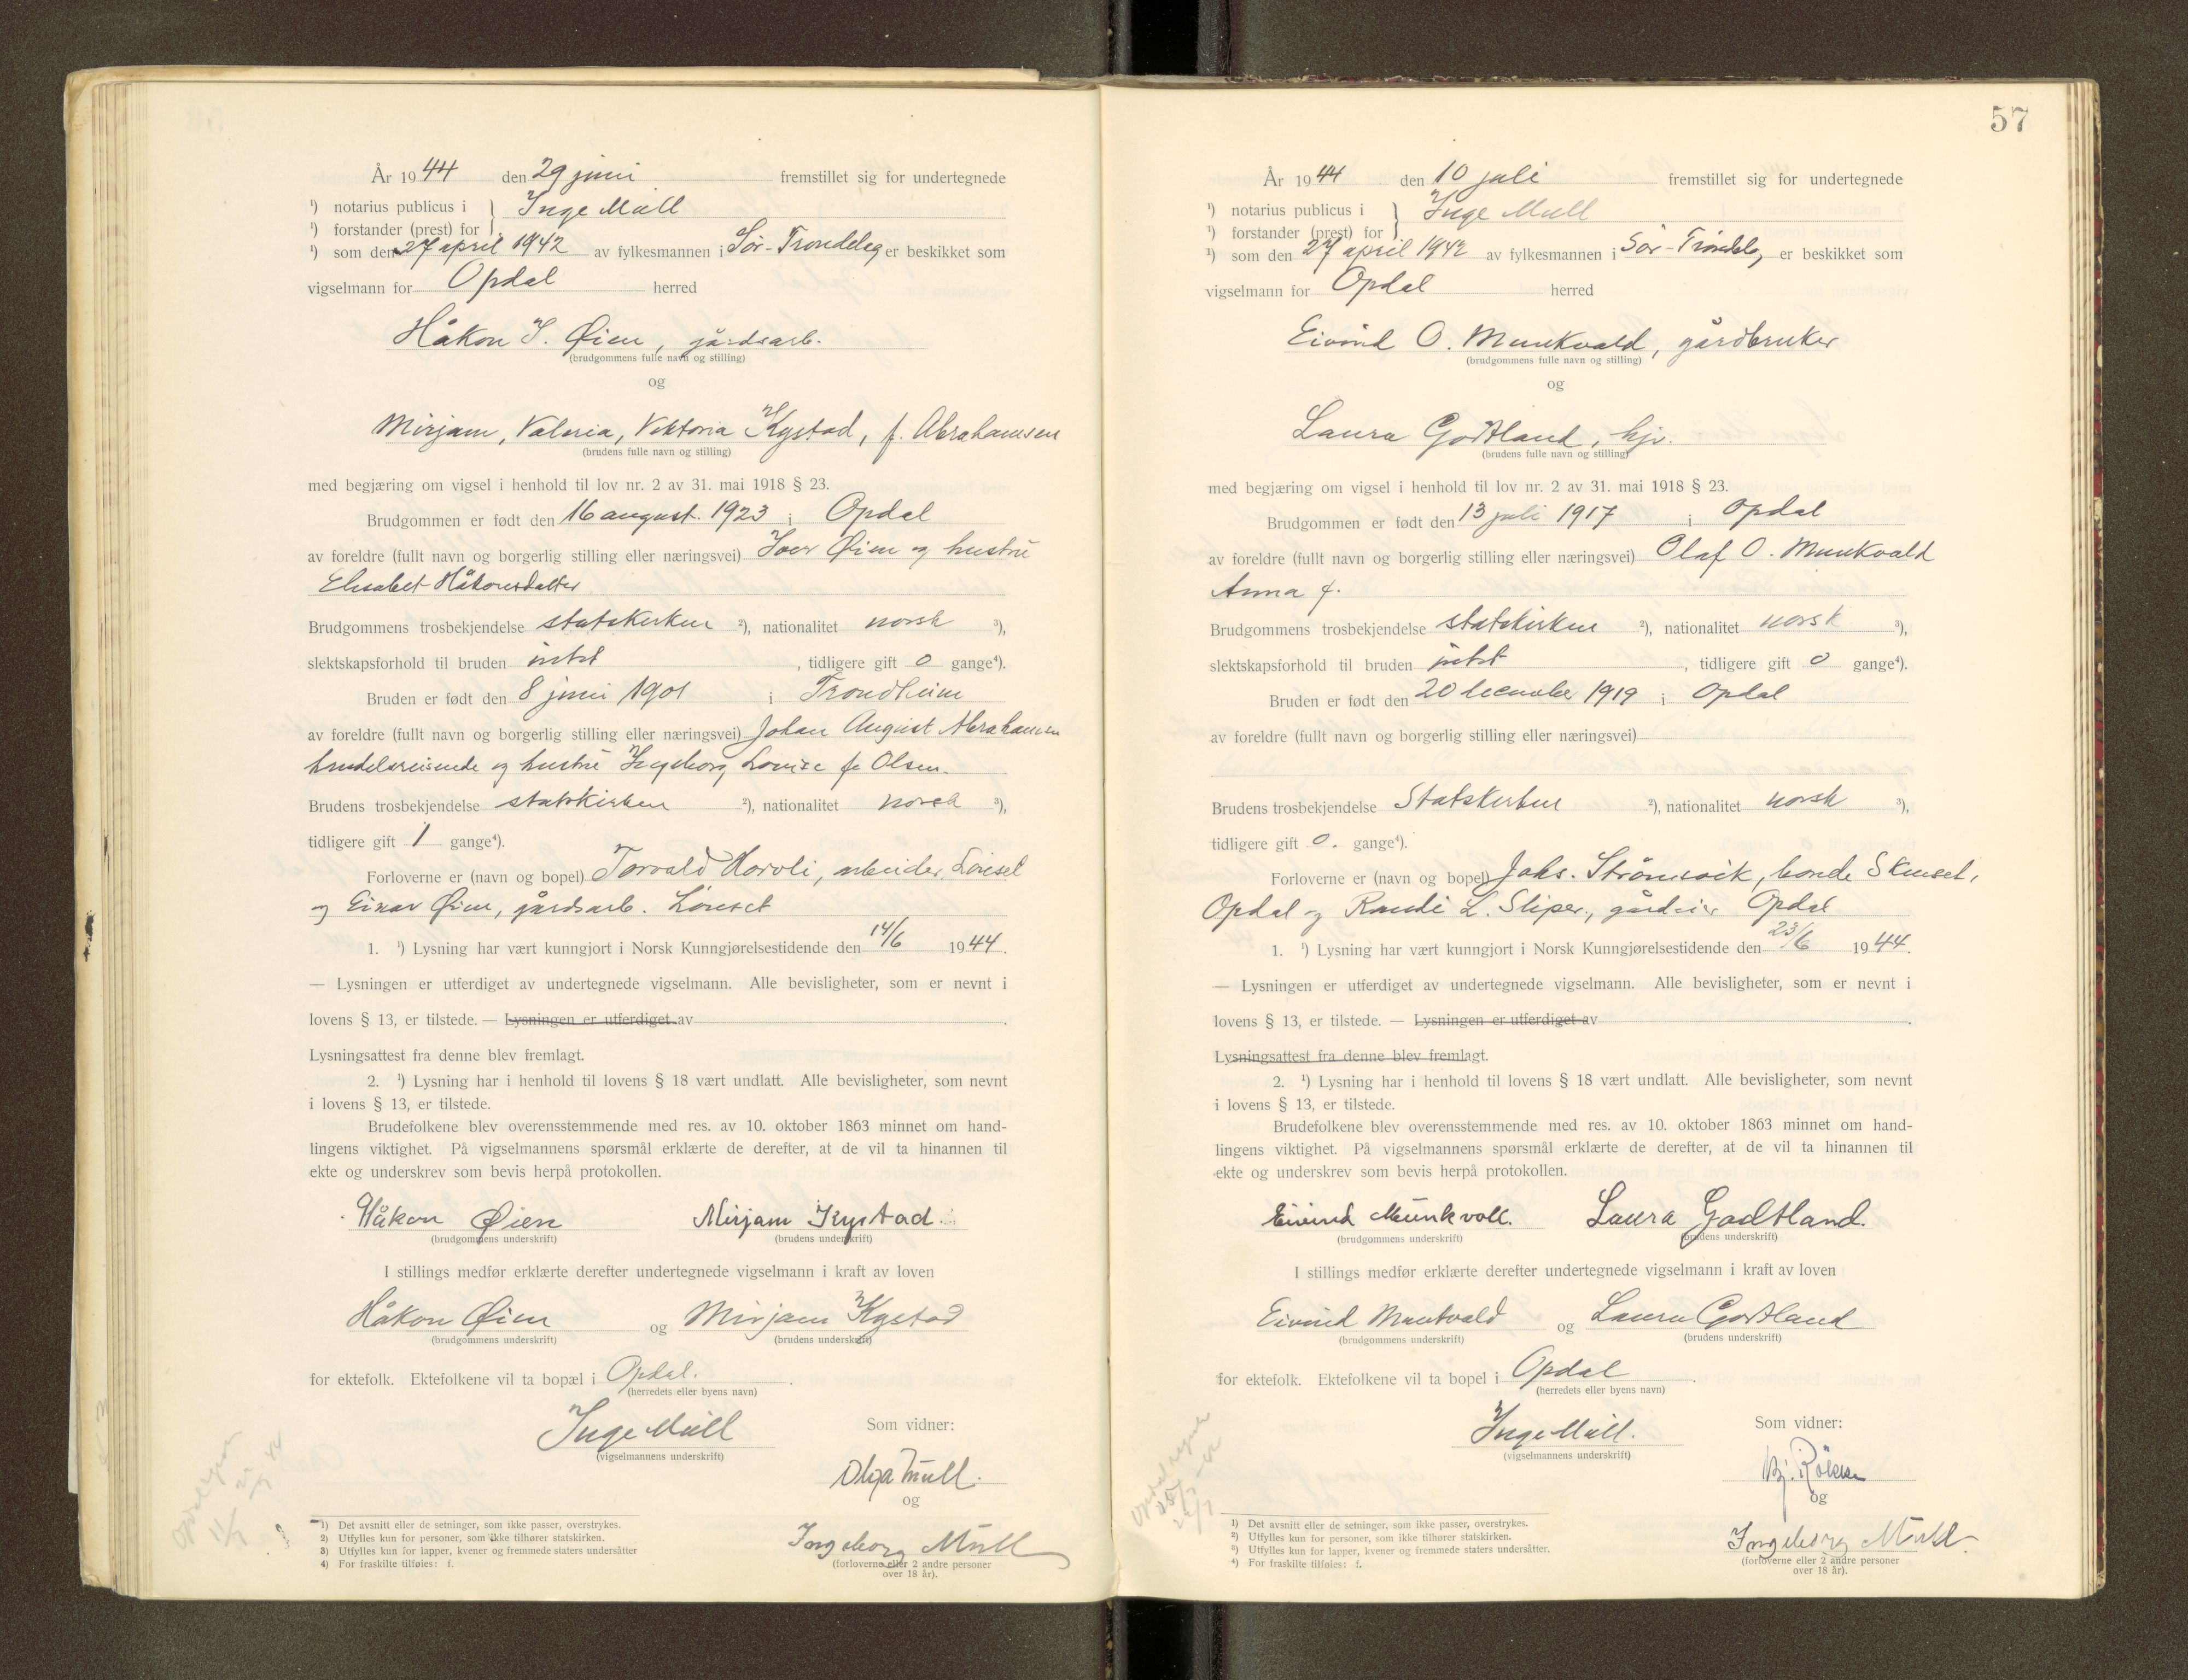 År 1944 den 29 juni fremstillet sig for undertegnede
¹) notarius publicus i } Inge Mull
¹) forstander (prest) for
¹) som den 27 april 1942 av fylkesmannen i Sør-Trøndelag er beskikket som
vigselmann for Opdal herred
Håkon I. Øien, gårdsarb.
(brudgommens fulle navn og stilling)
og
Mirjam, Valeria, Viktoria Kystad, f. Abrahamsen
(brudens fulle navn og stilling)
med begjæring om vigsel i henhold til lov nr. 2 av 31. mai 1918 § 23.
Brudgommen er født den 16 august. 1923 i Opdal
av foreldre (fullt navn og borgerlig stilling eller næringsvei) Iver Øien og hustru
Elisabet Håkonsdatter
Brudgommens trosbekjendelse statskirken ²), nationalitet norsk ³),
slektskapsforhold til bruden intet , tidligere gift 0 gange⁴).
Bruden er født den 8 juni 1901 i Trondheim
av foreldre (fullt navn og borgerlig stilling eller næringsvei) Johan August Abrahamsen
handelsreisende og hustru Ingeborg Lovise f. Olsen.
Brudens trosbekjendelse statskirken ²), nationalitet norsk ³),
tidligere gift 1 gange⁴).
Forloverne er (navn og bopel) Torvald Horvli, arbeider, Lønset
og Einar Øien, gårdsarb. Lønset
1. ¹) Lysning har vært kunngjort i Norsk Kunngjørelsestidende den 14/6 1944.
— Lysningen er utferdiget av undertegnede vigselmann. Alle bevisligheter, som er nevnt i
lovens § 13, er tilstede. — Lysningen er utferdiget av .
Lysningsattest fra denne blev fremlagt.
2. ¹) Lysning har i henhold til lovens § 18 vært undlatt. Alle bevisligheter, som nevnt
i lovens § 13, er tilstede.
Brudefolkene blev overensstemmende med res. av 10. oktober 1863 minnet om hand-
lingens viktighet. På vigselmannens spørsmål erklærte de derefter, at de vil ta hinannen til
ekte og underskrev som bevis herpå protokollen.
Håkon Øien Mirjam Kystad.
(brudgommens underskrift) (brudens underskrift)
I stillings medfør erklærte derefter undertegnede vigselmann i kraft av loven
Håkon Øien og Mirjam Kystad
(brudgommens underskrift) (brudens underskrift)
for ektefolk. Ektefolkene vil ta bopæl i Opdal.
(herredets eller byens navn)
Inge Mull
(vigselmannens underskrift)
Som vidner:
Olga Mull.
og
Ingeborg Mull
(forloverne eller 2 andre personer
over 18 år).
¹) Det avsnitt eller de setninger, som ikke passer, overstrykes.
2) Utfylles kun for personer, som ikke tilhører statskirken.
3) Utfylles kun for lapper, kvener og fremmede staters undersåtter
4) For fraskilte tilføies: f.
57
År 1944 den 10 juli fremstillet sig for undertegnede
¹) notarius publicus i } Inge Mull
¹) forstander (prest) for
¹) som den 27 april 1942 av fylkesmannen i Sør-Trøndelag er beskikket som
vigselmann for Opdal herred
Eivind O. Munkvold, gårdbruker
(brudgommens fulle navn og stilling)
og
Laura Godtland, hjv.
(brudens fulle navn og stilling)
med begjæring om vigsel i henhold til lov nr. 2 av 31. mai 1918 § 23.
Brudgommen er født den 13 juli 1917 i Opdal
av foreldre (fullt navn og borgerlig stilling eller næringsvei) Olaf O. Munkvold
Anna f.
Brudgommens trosbekjendelse statskirken ²), nationalitet norsk ³),
slektskapsforhold til bruden intet , tidligere gift 0 gange⁴).
Bruden er født den 20 december 1919 i Opdal
av foreldre (fullt navn og borgerlig stilling eller næringsvei)
Brudens trosbekjendelse Statskirken ²), nationalitet norsk ³),
tidligere gift 0. gange⁴).
Forloverne er (navn og bopel) Johs. Strømsvik, bonde
Opdal og L. Sliper, gårdeier Opdal
1. ¹) Lysning har vært kunngjort i Norsk Kunngjørelsestidende den 23/6 1944.
— Lysningen er utferdiget av undertegnede vigselmann. Alle bevisligheter, som er nevnt i
lovens § 13, er tilstede. — Lysningen er utferdiget av .
Lysningsattest fra denne blev fremlagt.
2. ¹) Lysning har i henhold til lovens § 18 vært undlatt. Alle bevisligheter, som nevnt
i lovens § 13, er tilstede.
Brudefolkene blev overensstemmende med res. av 10. oktober 1863 minnet om hand-
lingens viktighet. På vigselmannens spørsmål erklærte de derefter, at de vil ta hinannen til
ekte og underskrev som bevis herpå protokollen.
Eivind Munkvoll. Laura Godtland.
(brudgommens underskrift) (brudens underskrift)
I stillings medfør erklærte derefter undertegnede vigselmann i kraft av loven
Eivind Munkvold og Laura Godtland
(brudgommens underskrift) (brudens underskrift)
for ektefolk. Ektefolkene vil ta bopel i Opdal
(herredets eller byens navn)
Inge Mull.
(vigselmannens underskrift)
Som vidner:
og
Ingeborg Mull.
(forloverne eller 2 andre personer
over 18 år).
¹) Det avsnitt eller de setninger, som ikke passer, overstrykes.
²) Utfylles kun for personer, som ikke tilhører statskirken.
³) Utfylles kun for lapper, kvener og fremmede staters undersåtter.
⁴) For fraskilte tilføies: f.